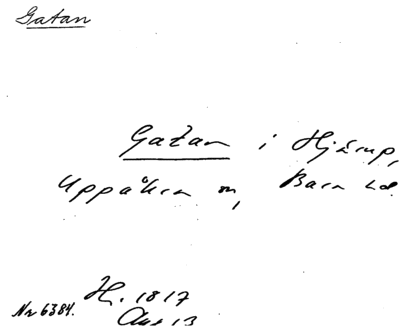 Gatan
Gatan i Hjärup,
Uppåkra sn, Bara hd.
H. 1817
Nr 6384.